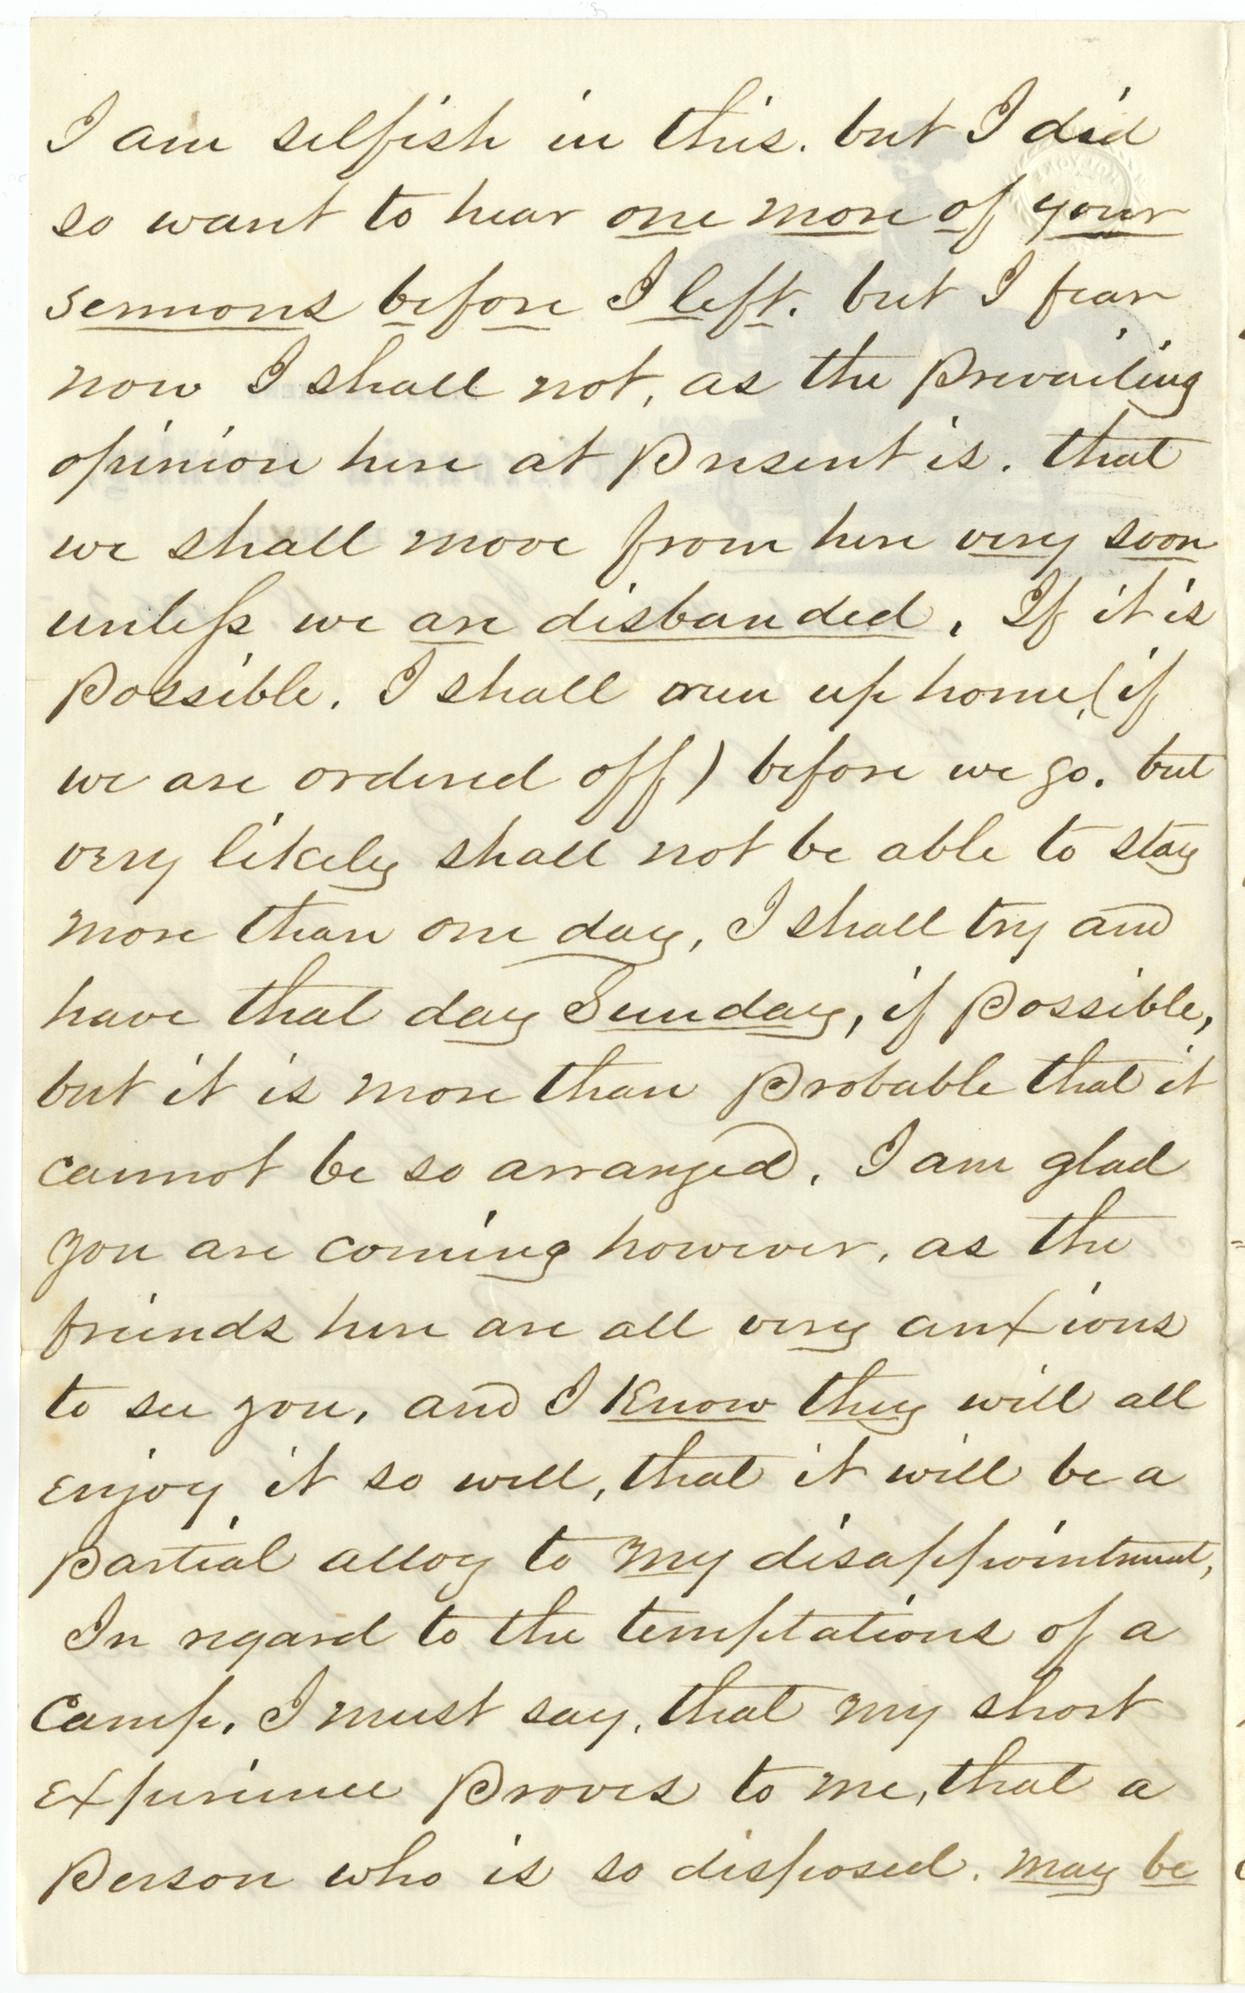 I am selfish in this. but I did
so want to hear one more of your
sermons before I left. but I fear
now I shall not, as the Prevailing
opinion here at Present is. that
we shall move from here very soon
unless we are disbanded. If it is
Possible. I shall run up home, (if
we are ordered off) before we go. but
very likely shall not be able to stay
more than one day, I shall try and
have that day Sunday, if Possible,
but it is more than Probable that it
cannot be so arranged. I am glad
you are coming however, as the
friends here are all very anxious
to see you, and I Know they will all
enjoy it so well, that it will be a
Partial alloy to my disappointment,
In regard to the temptations of a
Camp, I must say, that my short
experience Proves to me, that a
Person who is so disposed. may be